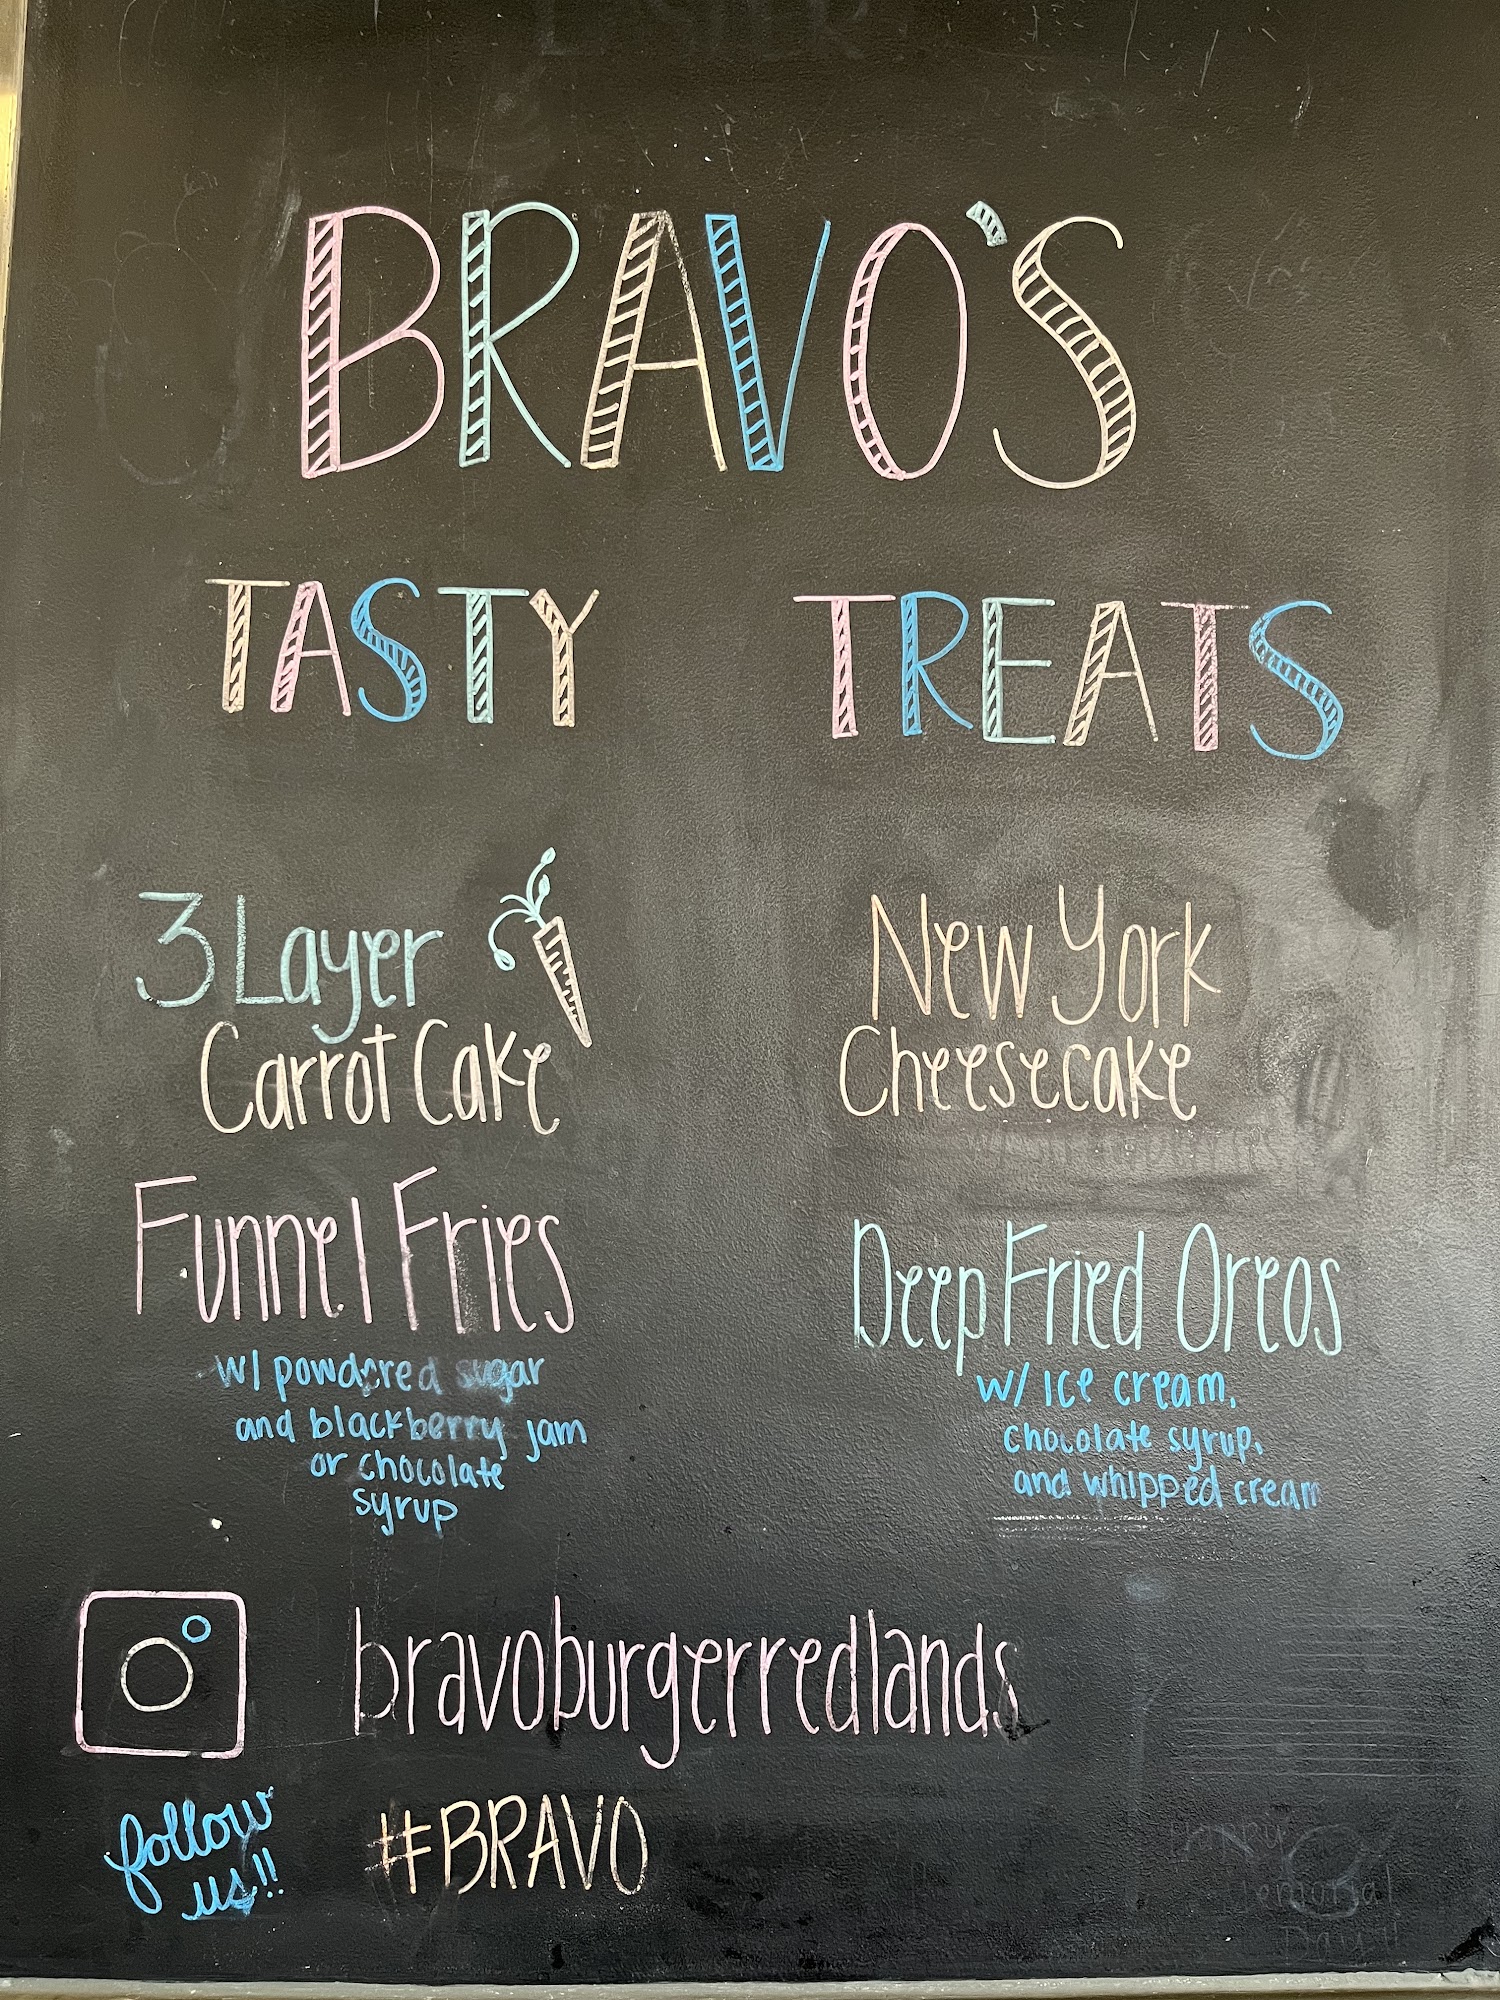 BRAVO'S
TASTY TREATS
3 Layer
Carrot Cake
Funnel Fries
w/ powdered sugar
and blackberry jam
or chocolate
syrup
New York
Cheesecake
Deep Fried Oreos
w/ ice cream,
chocolate syrup,
and whipped cream
bravoburgerredlands
follow
us!!
#BRAVO
Happy
Memorial
Day!!